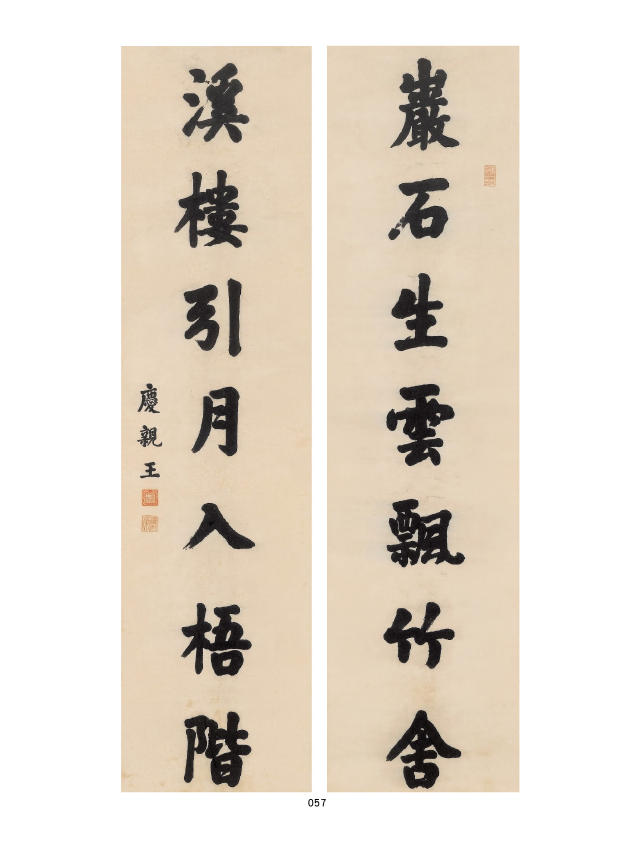 巖石生雲飄竹舍
溪樓引月入梧階
慶親王
057